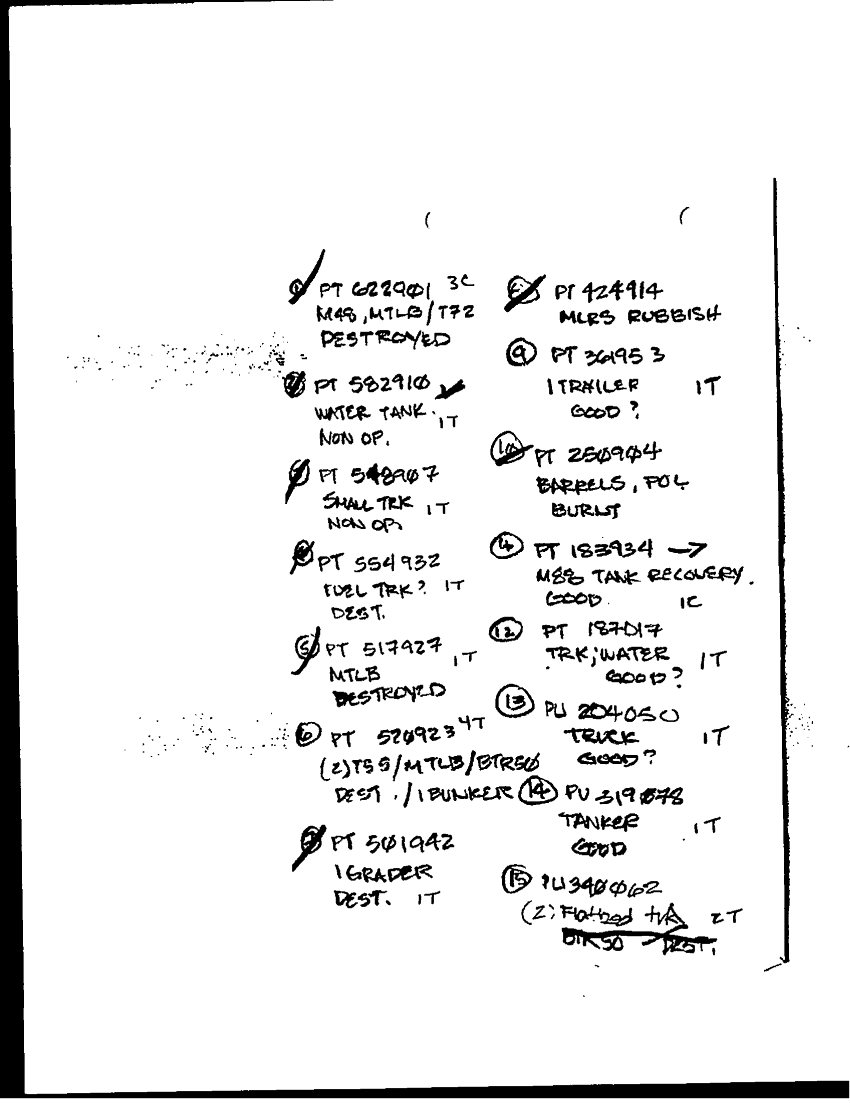 ① PT 622901 3C
M48, MTLB/T72
DESTROYED
② PT 582910 ✓
WATER TANK. 1T
NON OP.
PT 548907
SMALL TRK 1T
NON OP.
④ PT 554932
FUEL TRK? 1T
DEST.
⑤ PT 517927 1T
MTLB
DESTROYED
⑥ PT 520923 4T
(2) T55/MTLB/BTR50
DEST./1 BUNKER
⑦ PT 501942
1 GRADER
DEST. 1T
PT 424914
MLRS RUBBISH
⑨ PT 361953
1 TRAILER 1T
GOOD?
⑩ PT 250904
BARRELS, POL
BURNT
PT 183934 →
M88 TANK RECOVERY.
GOOD 1C
⑫ PT 187017
TRK, WATER 1T
GOOD?
⑬ PU 204050
TRUCK 1T
GOOD?
⑭ PU 319078
TANKER 1T
GOOD
⑮ PU 340062
(2) Flatbed 2T
BTR50 DEST.